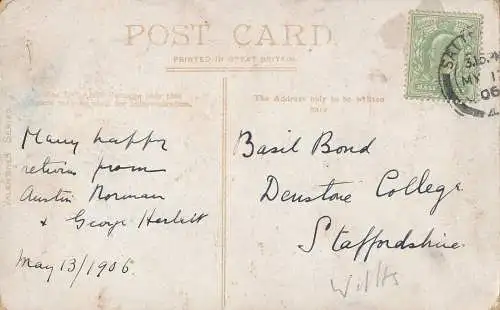 POST CARD.
PRINTED IN GREAT BRITAIN.
The Address only to be written
here
Many happy
returns from
Austin Norman
& George Herbert
May 13/1906.
Basil Bond
Denstone College
Staffordshire.
Wilts
MY 1
06